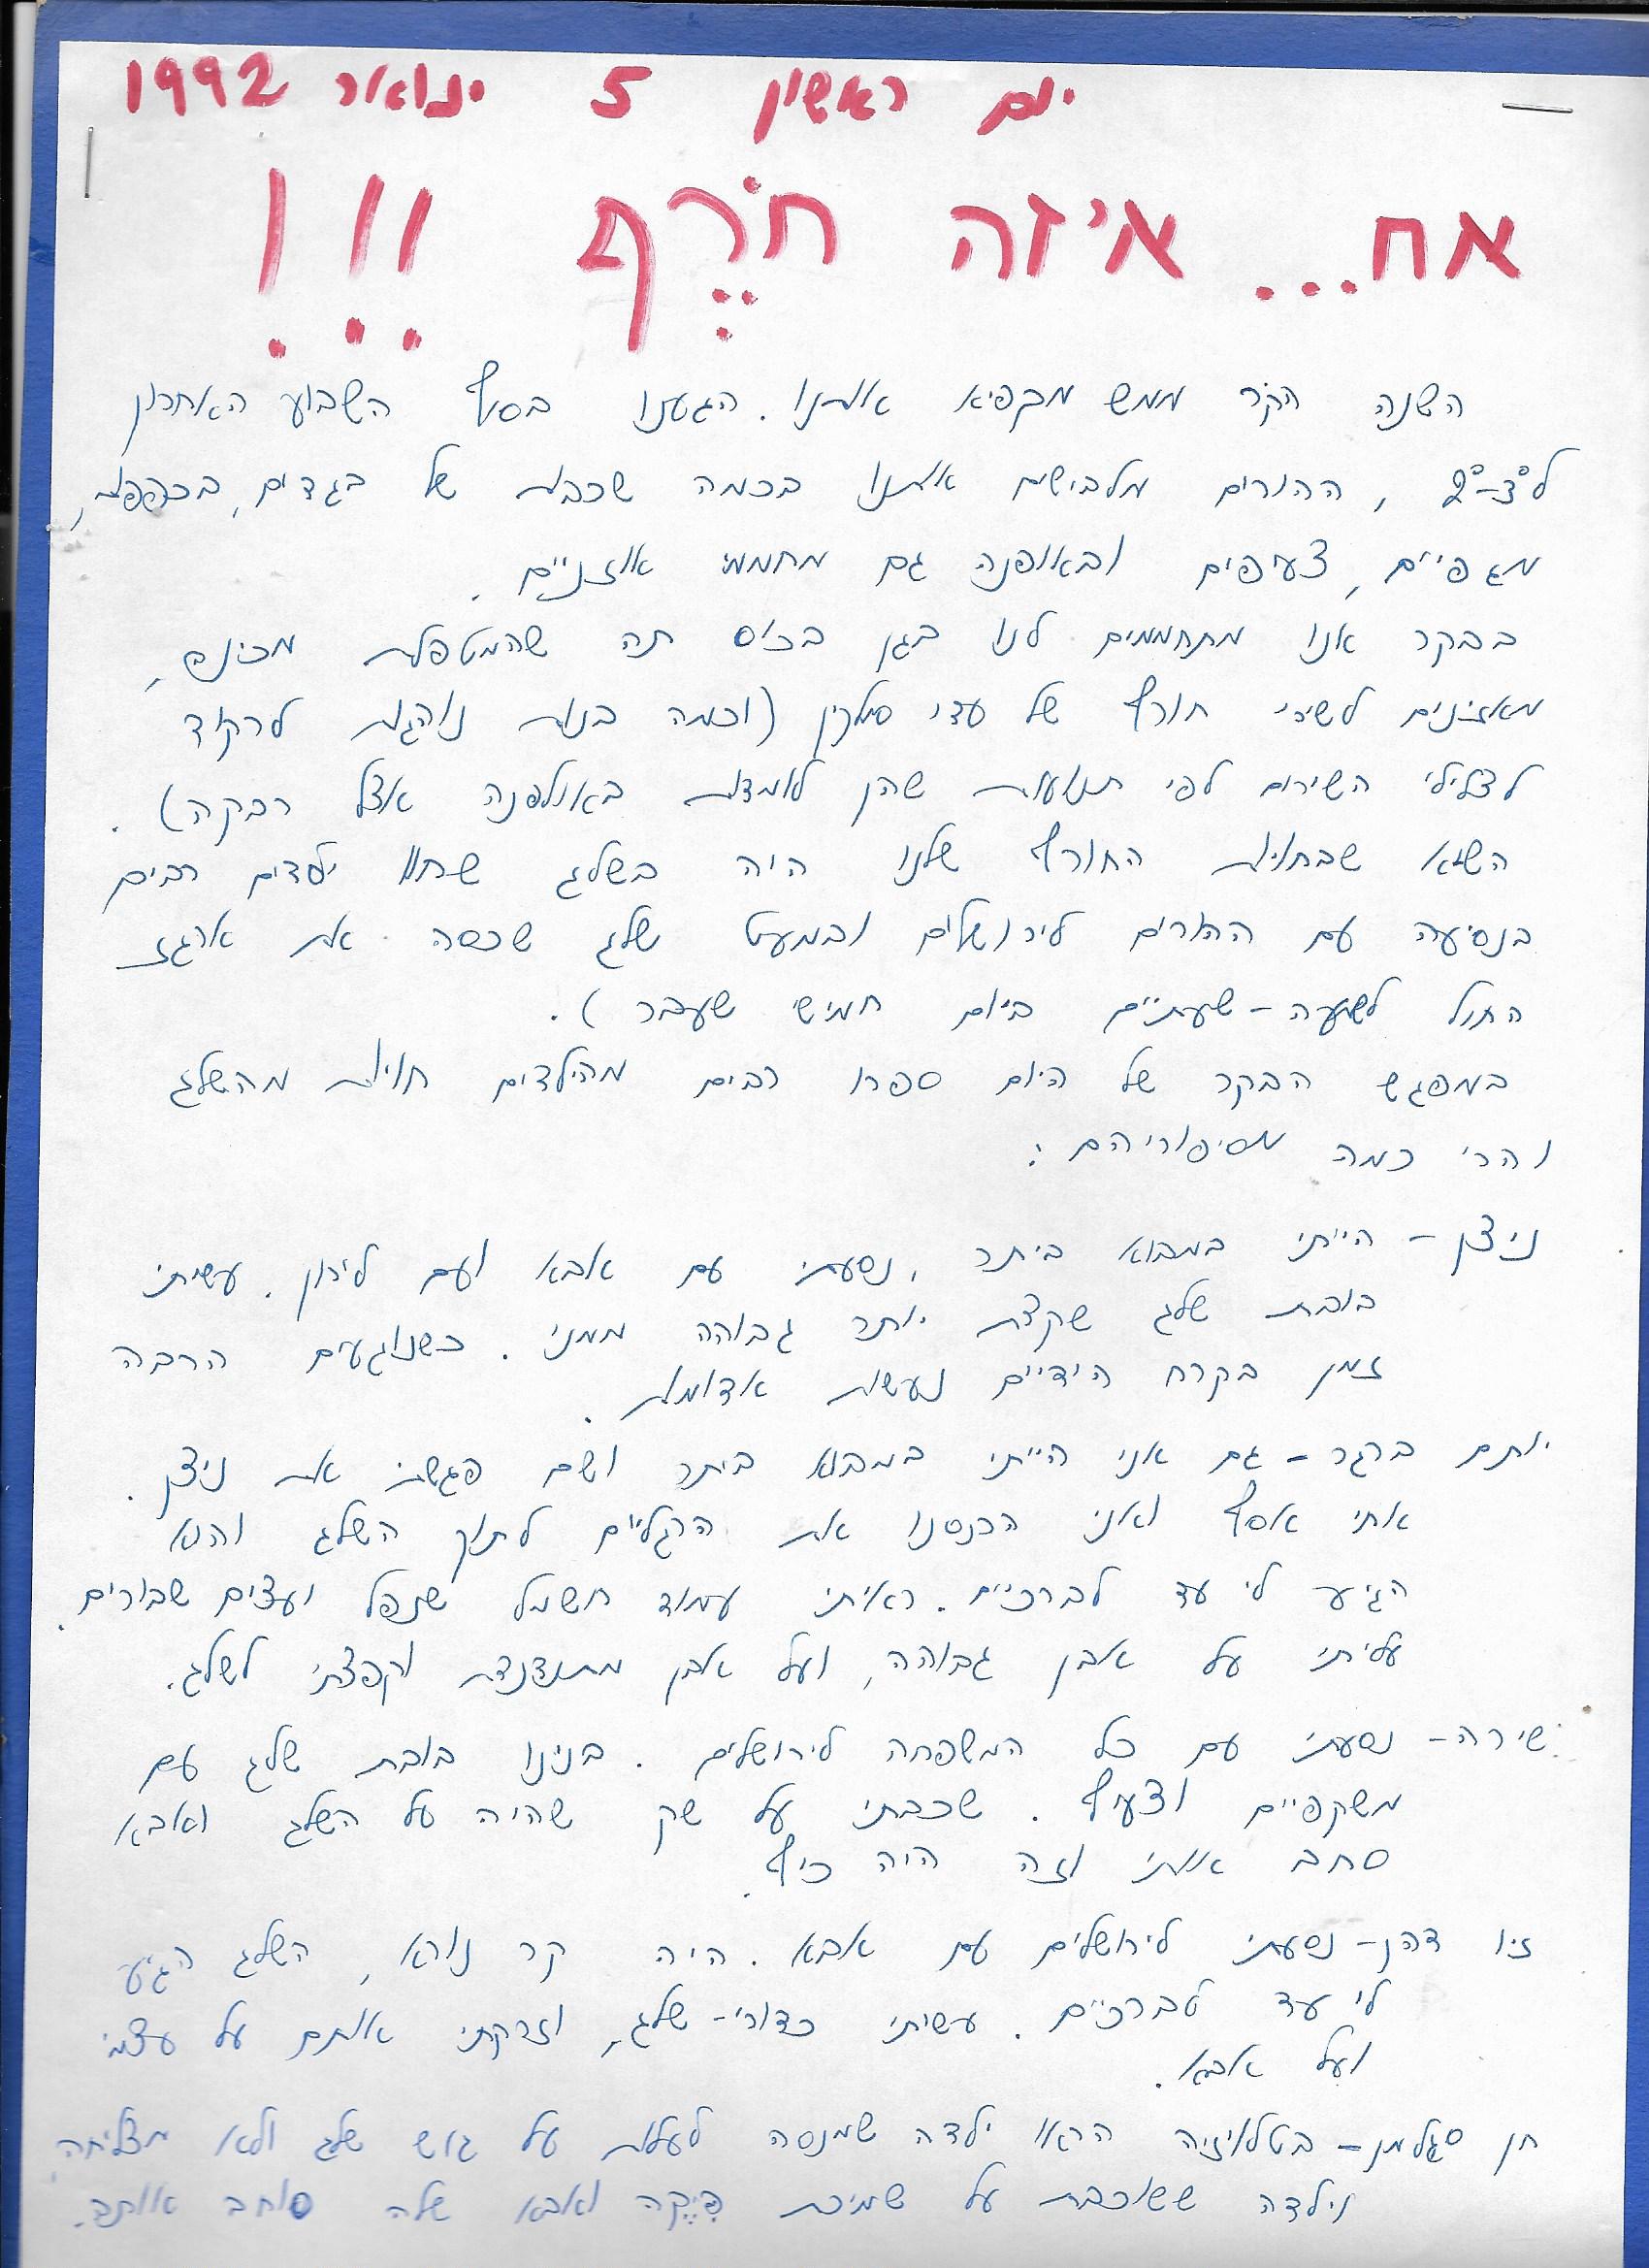 יום ראשון 5 ינואר 1992
אח... איזה חֹרֶף !!!
השנה הקר ממש מקפיא אותנו. הגענו בסוף השבוע האחרון
ל־3°-2°, ההורים מלבישים אותנו בכמה שכבות של בגדים, בכפפות,
מגפיים, צעיפים ובאופנה גם מחממי אוזניים.
בבקר אנו מתחממים לנו בגן בכוס תה שהמטפלת מכינה,
מאזינים לשירי חורף של עדי (וכמה בנות נוהגות לרקוד
לצלילי השירים לפי תנועות שהן לומדות באולפנה אצל רבקה).
השיא שבחוויות החורף שלנו היה בשלג שחוו ילדים רבים
בנסיעה עם ההורים לירושלים ובמעט שלג שכסה את ארגז
החול לשעה-שעתיים ביום חמישי שעבר).
במפגש הבקר של היום ספרו רבים מהילדים חויות מהשלג
והרי כמה מסיפוריהם:
ניצן - הייתי במבוא ביתר, נסעתי עם אבא ועם לירון. עשיתי
בובת שלג שקצת יותר גבוהה ממני. כשנוגעים הרבה
זמן בקרח הידיים נעשות אדומות.
יותם ברגר - גם אני הייתי במבוא ביתר ושם פגשתי את ניצן.
אחי אסף ואני הכנסנו את הרגליים לתוך השלג והוא
הגיע לי עד לברכיים. ראיתי עמוד חשמל שנפל ועצים שבורים.
עליתי על אבן גבוהה, ועל אבן מתנדנדת וקפצתי לשלג.
שירה - נסעתי עם כל המשפחה לירושלים. בנינו בובת שלג עם
משקפיים וצעיף. שכבתי על שק שהיה על השלג ואבא
סחב אותי וזה היה כיף.
זיו דהן - נסעתי לירושלים עם אבא. היה קר נורא, השלג הגיע
לי עד לברכיים. עשיתי כדורי-שלג, וזרקתי אותם על עצמי
ועל אבא.
חן סגלמן - בטלויזיה הראו ילדה שמנסה לעלות על גוש שלג ולא מצליחה
וילדה ששוכבת על שמיכת פִּיקֶה ואבא שלה סוחב אותה.